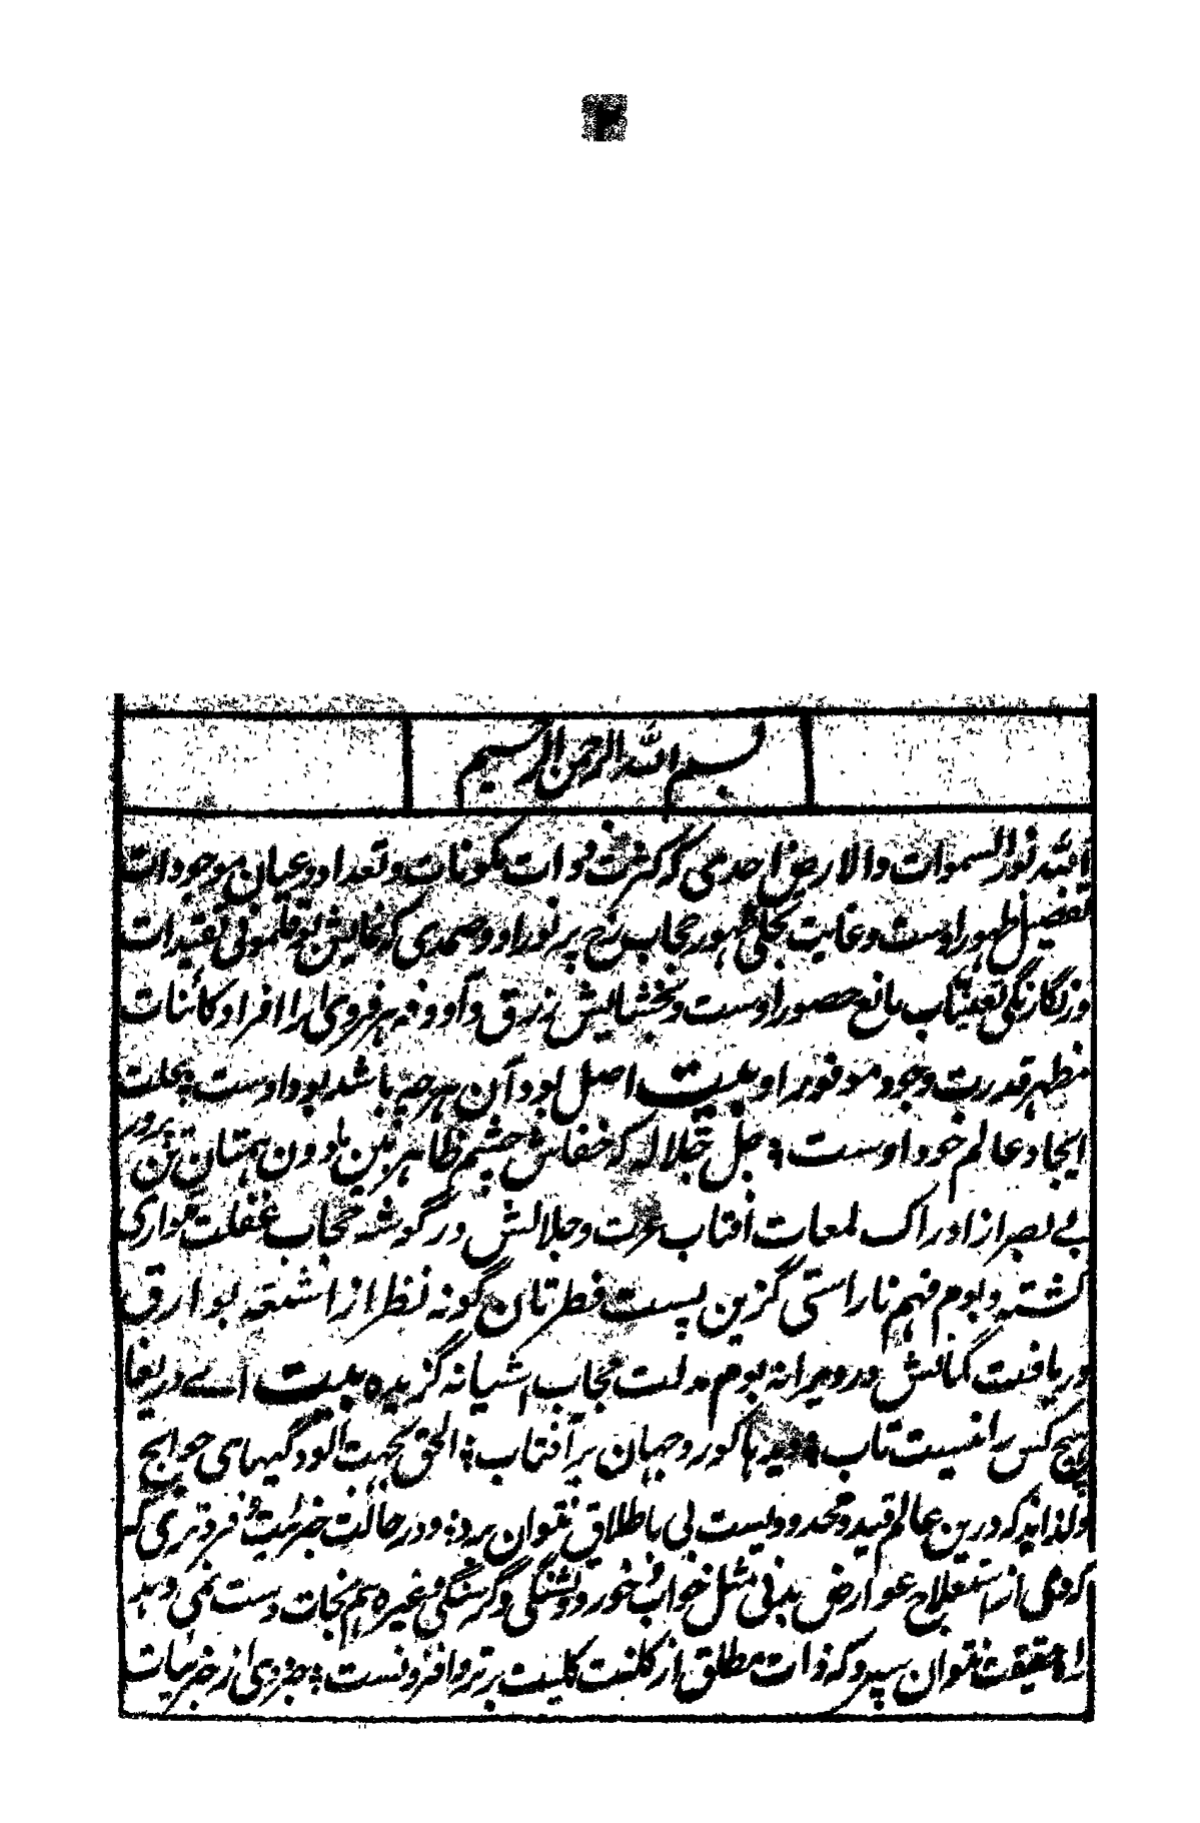 ۲
بسم الله الرحمن الرحیم
الله نور السموات والارض احدی که کثرت ذوات مکونات و تعداد اعیان موجودات
تفصیل ظهور اوست و غایت تجلی ظهور حجاب رخ پر نور او و صمدی که نمایش بوقلمونی تقیدات
و رنگارنگی تعینات مانع حضور اوست و بخشایش رزق و آوونه هر فردی را افراد کائنات
مظهر قدرت وجود موفور او بیت اصل بود آن هر چه باشد بود اوست ؛ علت
ایجاد عالم خود اوست ؛ جل جلاله که خفاش چشم ظاهر بین ما دون همتان تن پرور
بی بصر از ادراک لمعات آفتاب عزت و جلالش در گوشه حجاب غفلت متواری
گشته و بوم فهم ناراستی گزین پست فطرتان گونه نظر از اشعه بوارق
دریافت کمالش در ویرانه بوم مذلت حجاب آشیانه گزیده بیت اے دریغا
هیچ کس را نیست تاب ؛ دیدها کور و جهان پر آفتاب ؛ الحق بجهت آلودگیهای حوایج
و لذاید که درین عالم قید و تحدود یست پی باطلاق نتوان برد ؛ و در حالت جزئیت و فروتری که
کردی از استعلاج عوارض بدنی مثل خواب و خور و تشنگی و گرسنگی و غیره هم نجات دست نمی دهد
راه حقیقت نتوان سپرد که ذات مطلق از کلفت کلیت برتر و افزونست ؛ جزوی از جزئیات